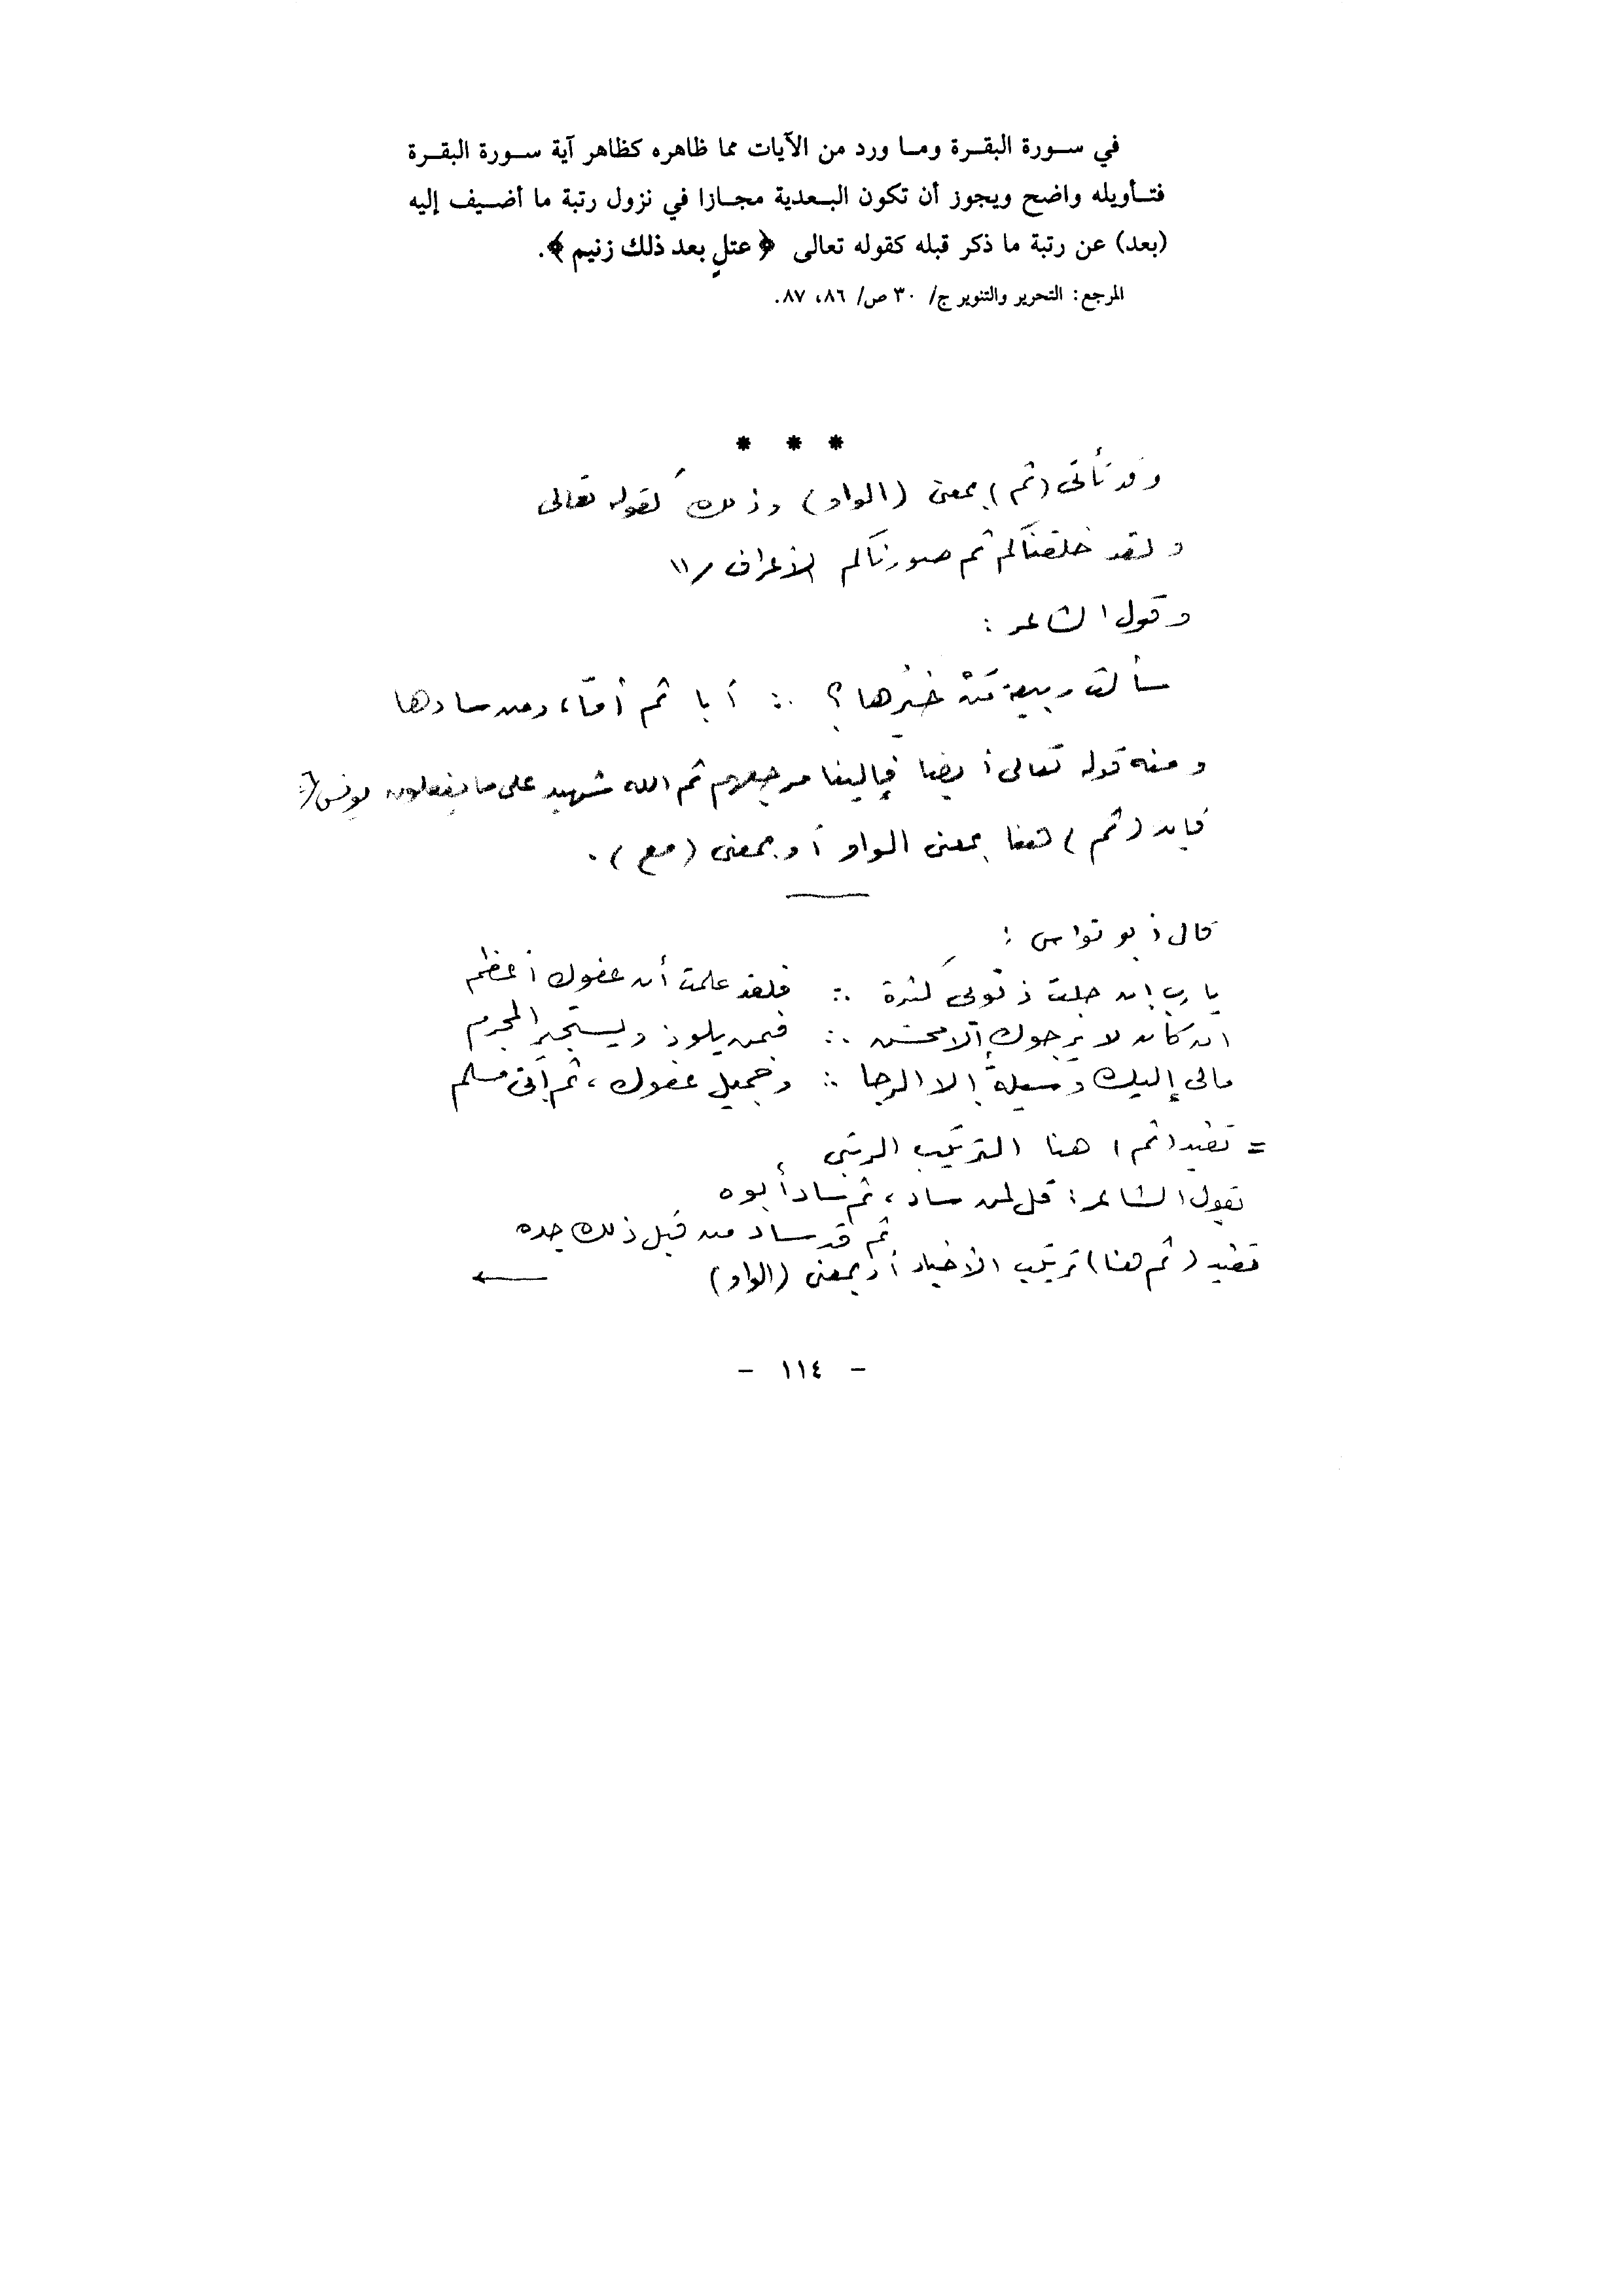 في سورة البقرة وما ورد من الآيات مما ظاهره كظاهر آية سورة البقرة
فتأويله واضح ويجوز أن تكون البعدية مجازا في نزول رتبة ما أضيف إليه
(بعد) عن رتبة ما ذكر قبله كقوله تعالى ﴿عتلٍ بعد ذلك زنيم﴾.
المرجع: التحرير والتنوير ج/ ٣٠ ص/ ٨٦، ٨٧.
* * *
وقد تأتى (ثم) بمعنى (الواو) وذلك كقوله تعالى
ولقد خلقناكم ثم صورناكم الأعراف /١١
وقول الشاعر:
سألت ربيعة مَنْ خيرُها؟ ∴ أبا ثم أمّا، ومن سادها
ومنه قوله تعالى أيضا فإلينا مرجعهم ثم الله شهيد على ما يفعلون يونس/
فإن (ثم) هنا بمعنى الواو أو بمعنى (مع).
قال أبو نواس:
يا رب إن جلت ذنوبى كثرة ∴ فلقد علمت أن عفوك أعظم
ان كان لا يرجوك إلا محسن ∴ فبمن يلوذ ويستجير المجرم
مالى إليك وسيلةٌ إلا الرجا ∴ وجميل عفوك، ثم أنى مسلم
= تفيد (ثم) هنا الترتيب الرتبى
يقول الشاعر: قل لمن ساد، ثم ساد أبوه
ثم قد ساد من قبل ذلك جده
تفيد (ثم هنا) ترتيب الأخبار أو بمعنى (الواو) ←
- ١١٤ -